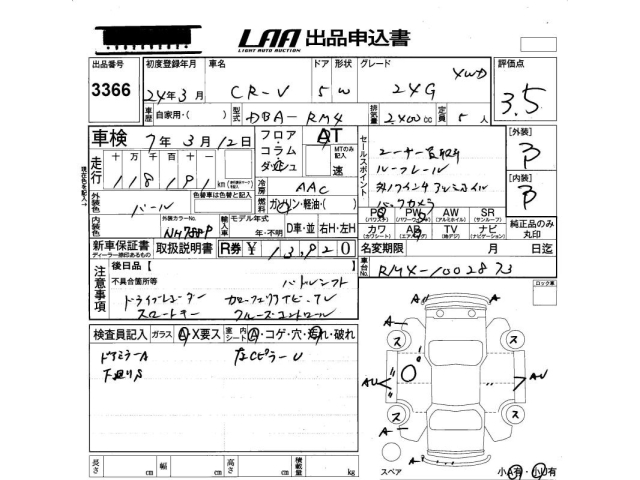 LAA 出品申込書
LIGHT AUTO AUCTION
出品番号 3366
初度登録年月 24年3月
車名 CR-V
ドア 5 形状 W
グレード 24G 4WD
評価点 3.5
車歴 自家用・( )
型式 DBA-RM4
排気量 2400cc
定員 5人
車検 7年3月12日
フロア・コラム・ダッシュ
AT
MTのみ記入 速
セールスポイント
ユーザー買取り
ルーフレール
バックカメラ
[外装] B
[内装] B
走行 十万 万 千 百 十 一
118191 km
冷房 AAC
燃料 ガソリン・軽油・( )
現在の色を記入
外装色 パール
色替車は色替と記入
外装カラーNo. NH788P
輸入車 モデル年式 年・不明
D車・並 右H・左H
PS (パワステ) PW (パワーウィンドウ) AW (アルミホイル) SR (サンルーフ)
カワ (カワシート) AB (エアバック) TV (地デジ) ナビ (ナビゲーション)
純正品のみ丸印
新車保証書 ディーラー捺印あるもの
取扱説明書
R券 ¥13,920
名変期限 月 日迄
車台No. RM4-1002873
注意事項
後日品【 】
不具合箇所等
パドルシフト
ドライブレコーダー
スマートキー クルーズコントロール
ロック車
検査員記入 ガラス A・X要ス
室内 シート A・コゲ・穴・汚れ・破れ
ドアミラーA
下廻りS
左CピラーU
A A
A
ス ス
AU AU
ス ス
A
A
長さ cm 幅 cm 高さ cm 積載量 kg
スペア
小A有・小U有